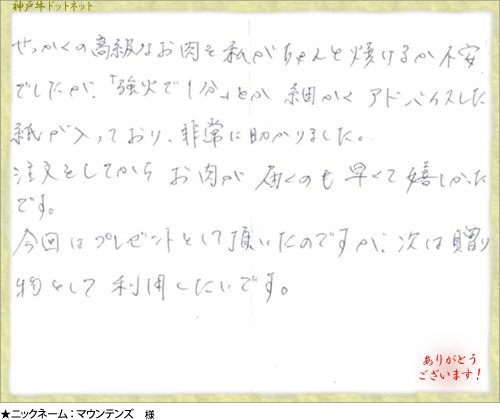 神戸牛ドットネット
せっかくの高級なお肉を私がちゃんと焼けるか不安
でしたが、「強火で1分」とか 細かく アドバイスした
紙が入っており、非常に助かりました。
注文をしてから お肉が 届くのも 早くて嬉しかった
です。
今回はプレゼントとして頂いたのですが、次は贈り
物として 利用したいです。
ありがとう
ございます!
★ニックネーム:マウンテンズ 様